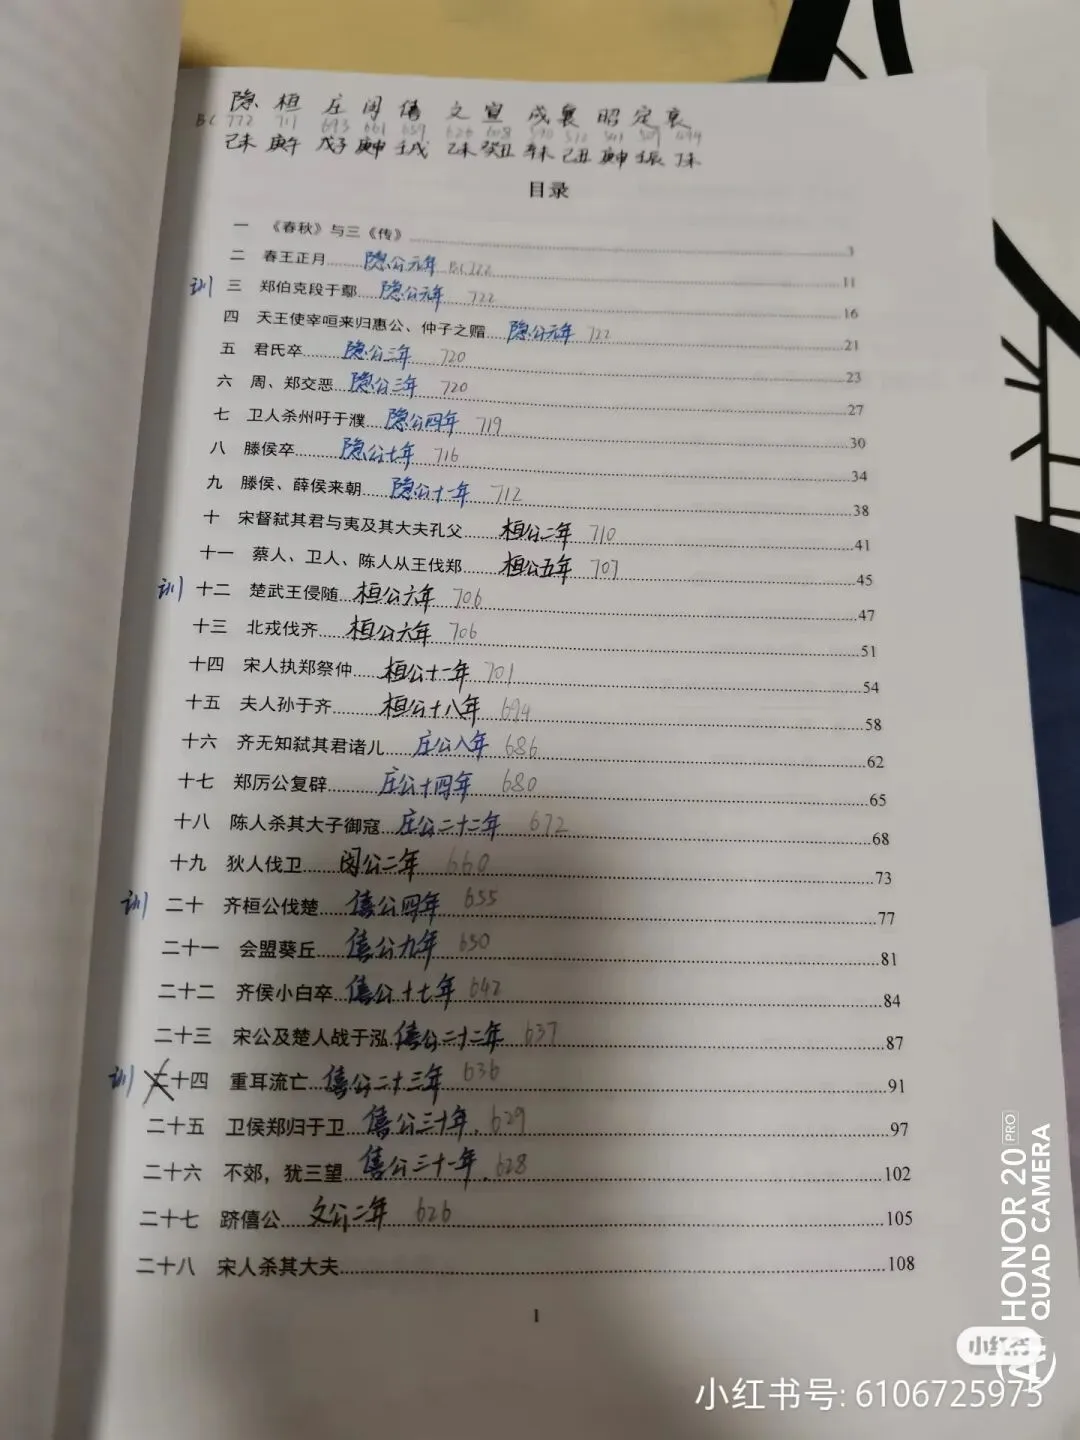 隐 桓 庄 闵 僖 文 宣 成 襄 昭 定 哀
BC 722 711 693 661 659 626 608 590 572 541 509 494
己未 庚午 戊子 庚申 壬戌 乙未 癸丑 辛未 己丑 庚申 壬辰 丁未
目录
一 《春秋》与三《传》 3
二 春王正月 隐公元年 BC722 11
训 三 郑伯克段于鄢 隐公元年 722 16
四 天王使宰咺来归惠公、仲子之赗 隐公元年 722 21
五 君氏卒 隐公三年 720 23
六 周、郑交恶 隐公三年 720 27
七 卫人杀州吁于濮 隐公四年 719 30
八 滕侯卒 隐公七年 716 34
九 滕侯、薛侯来朝 隐公十一年 712 38
十 宋督弑其君与夷及其大夫孔父 桓公二年 710 41
十一 蔡人、卫人、陈人从王伐郑 桓公五年 707 45
训 十二 楚武王侵随 桓公六年 706 47
十三 北戎伐齐 桓公六年 706 51
十四 宋人执郑祭仲 桓公十一年 701 54
十五 夫人孙于齐 桓公十八年 694 58
十六 齐无知弑其君诸儿 庄公八年 686 62
十七 郑厉公复辟 庄公十四年 680 65
十八 陈人杀其大子御寇 庄公二十二年 672 68
十九 狄人伐卫 闵公二年 660 73
训 二十 齐桓公伐楚 僖公四年 655 77
二十一 会盟葵丘 僖公九年 650 81
二十二 齐侯小白卒 僖公十七年 642 84
二十三 宋公及楚人战于泓 僖公二十二年 637 87
训 二十四 重耳流亡 僖公二十三年 636 91
二十五 卫侯郑归于卫 僖公三十年 629 97
二十六 不郊，犹三望 僖公三十一年 628 102
二十七 跻僖公 文公二年 626 105
二十八 宋人杀其大夫 108
1
HONOR 20 PRO
QUAD CAMERA
小红书
小红书号: 6106725975